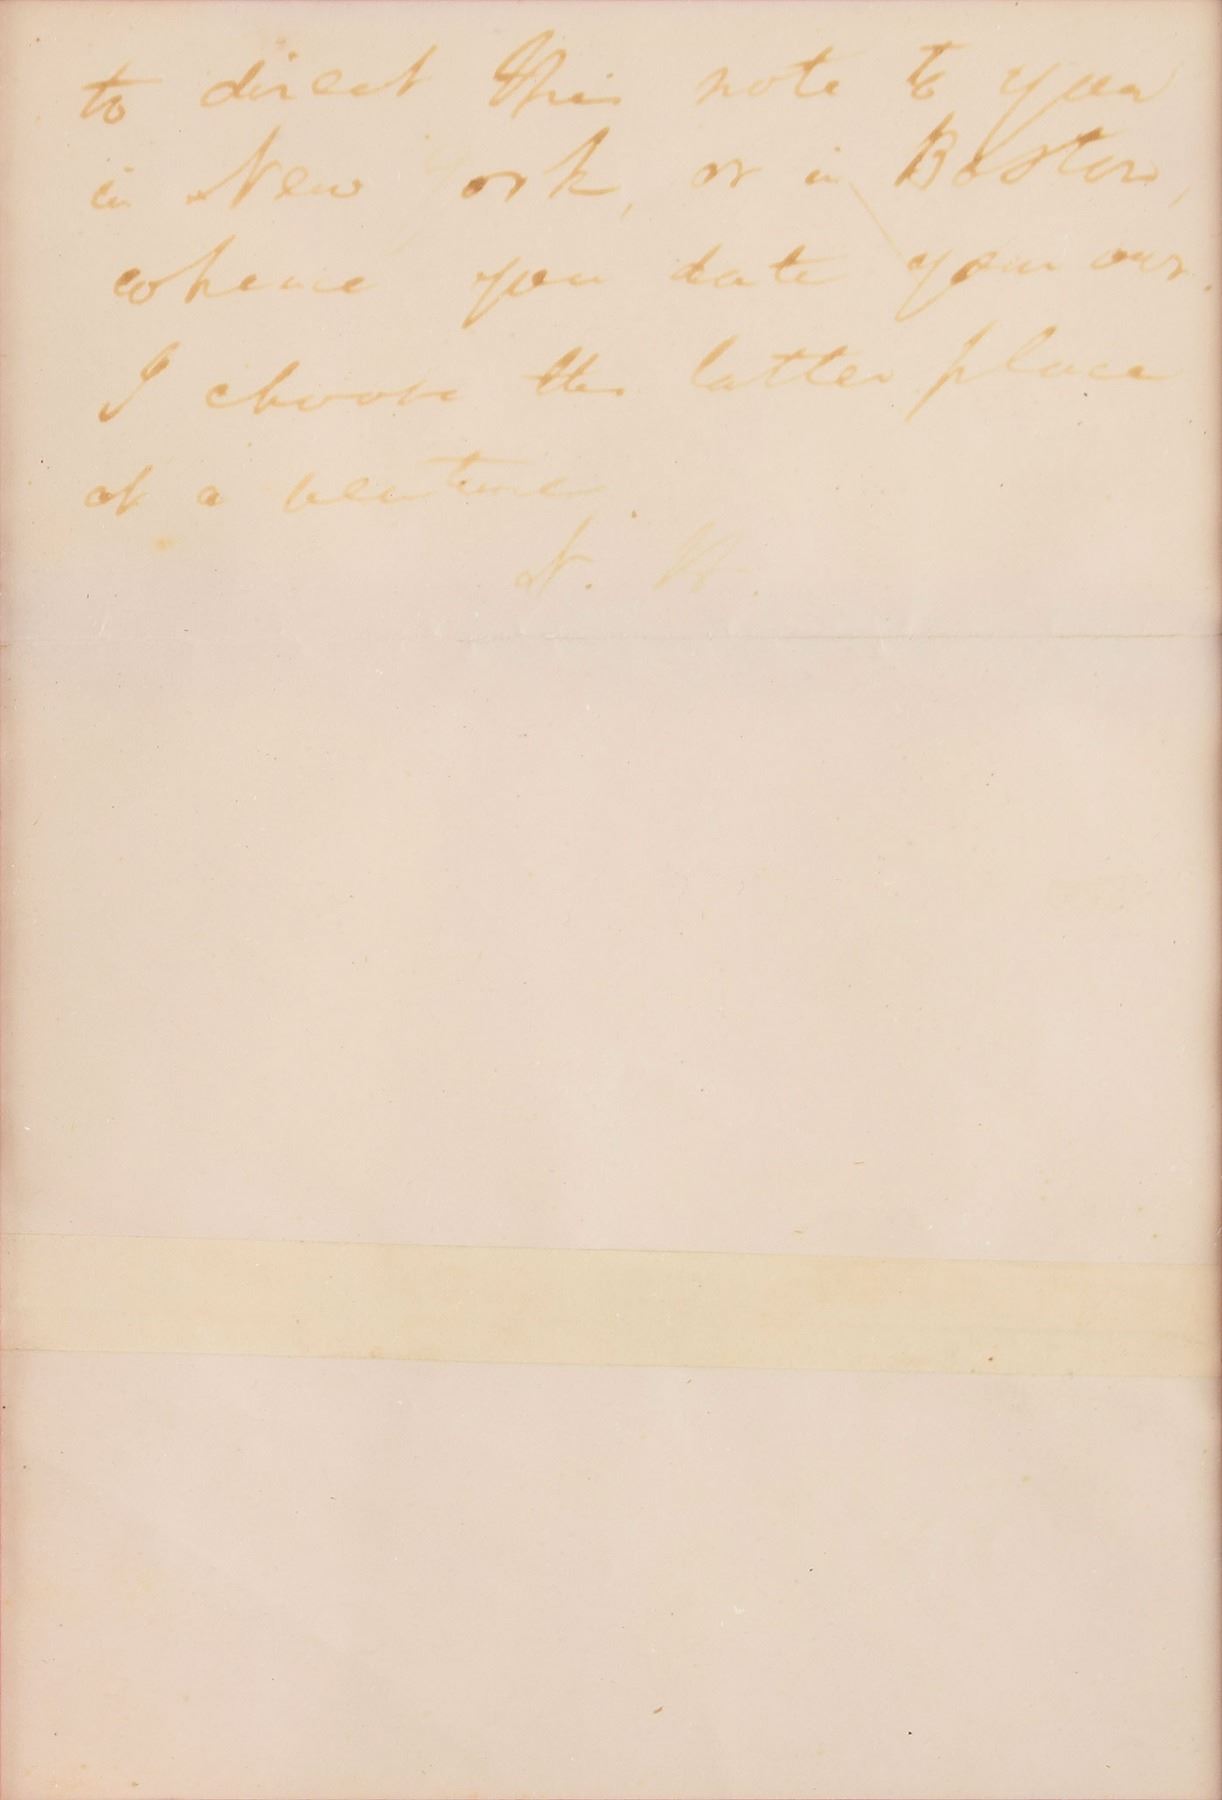 to direct this note to you
in New York, or in Boston,
whence you date your own.
I choose the latter place
at a venture.
N. H.